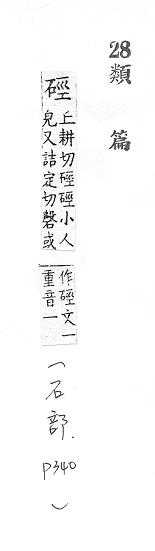 28類篇
硜
丘耕切硜硜小人
皃又詰定切磬或
作硜文一
重音一
(石部.P340)